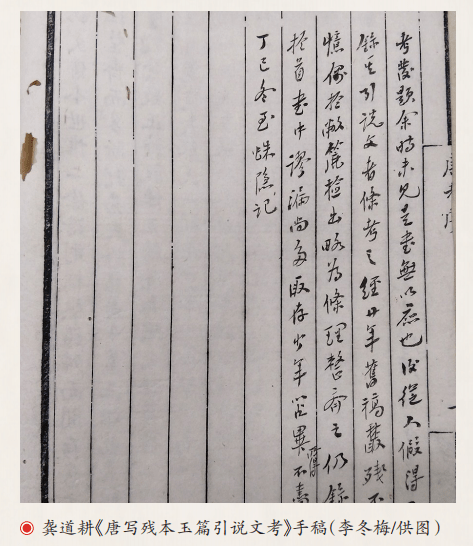 考發題余時未見是書無以應也後從人假得
録其引説文者條考之經廿年舊稿叢殘不
憶偶於敝篋檢出略為條理整齊之仍録
於首書中謬漏尚多取存少年
丁巳冬至蛛隐记
龚道耕《唐写残本玉篇引说文考》手稿(李冬梅/供图)